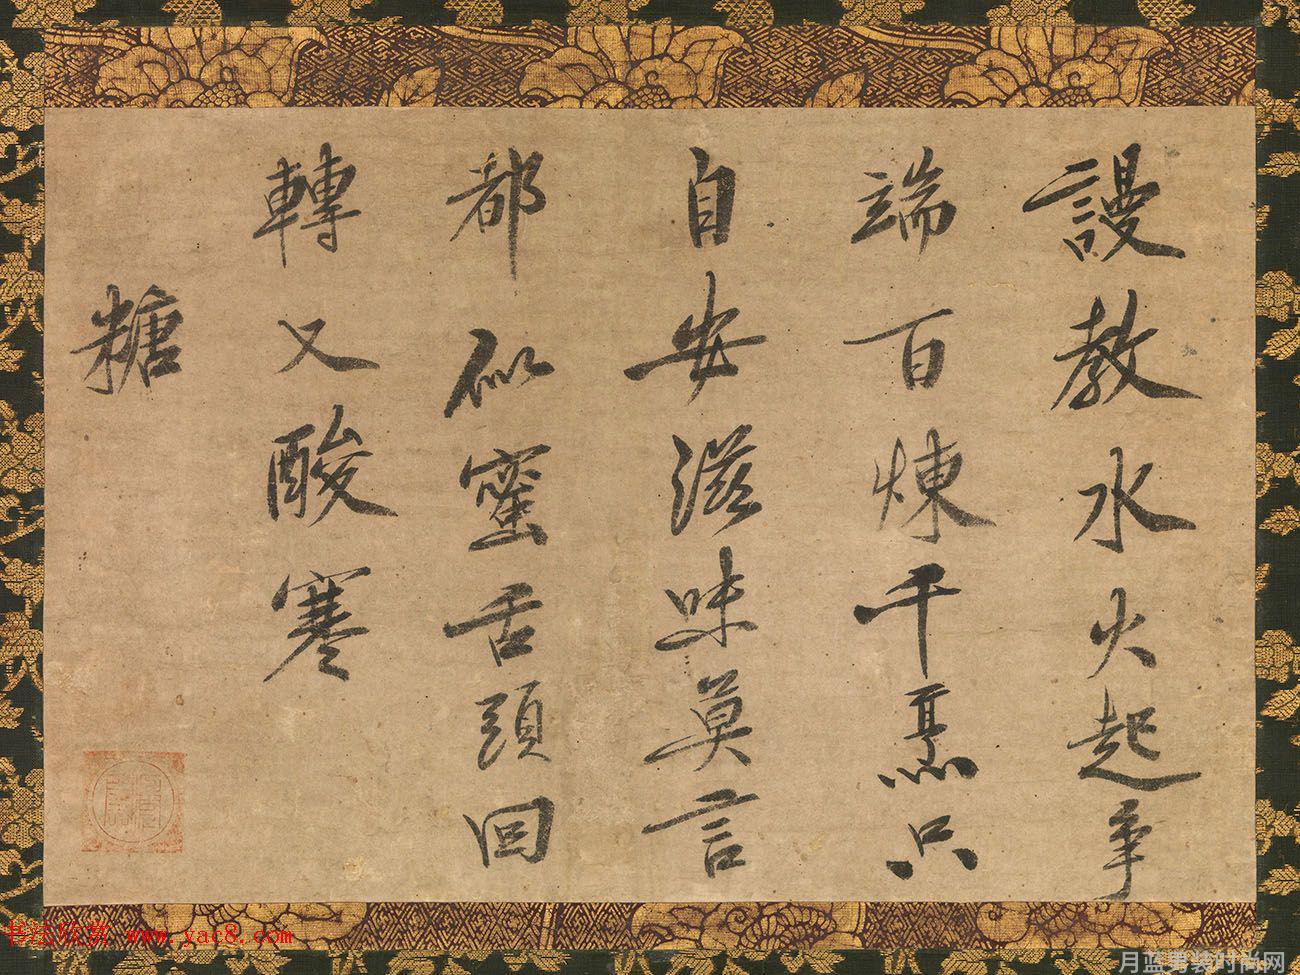 謾教水火起争
端百煉千只
自安滋味莫言
都似蜜舌頭回
轉又酸寒
糖
书法欣赏 www.yac8.com
月蓝男装时尚网